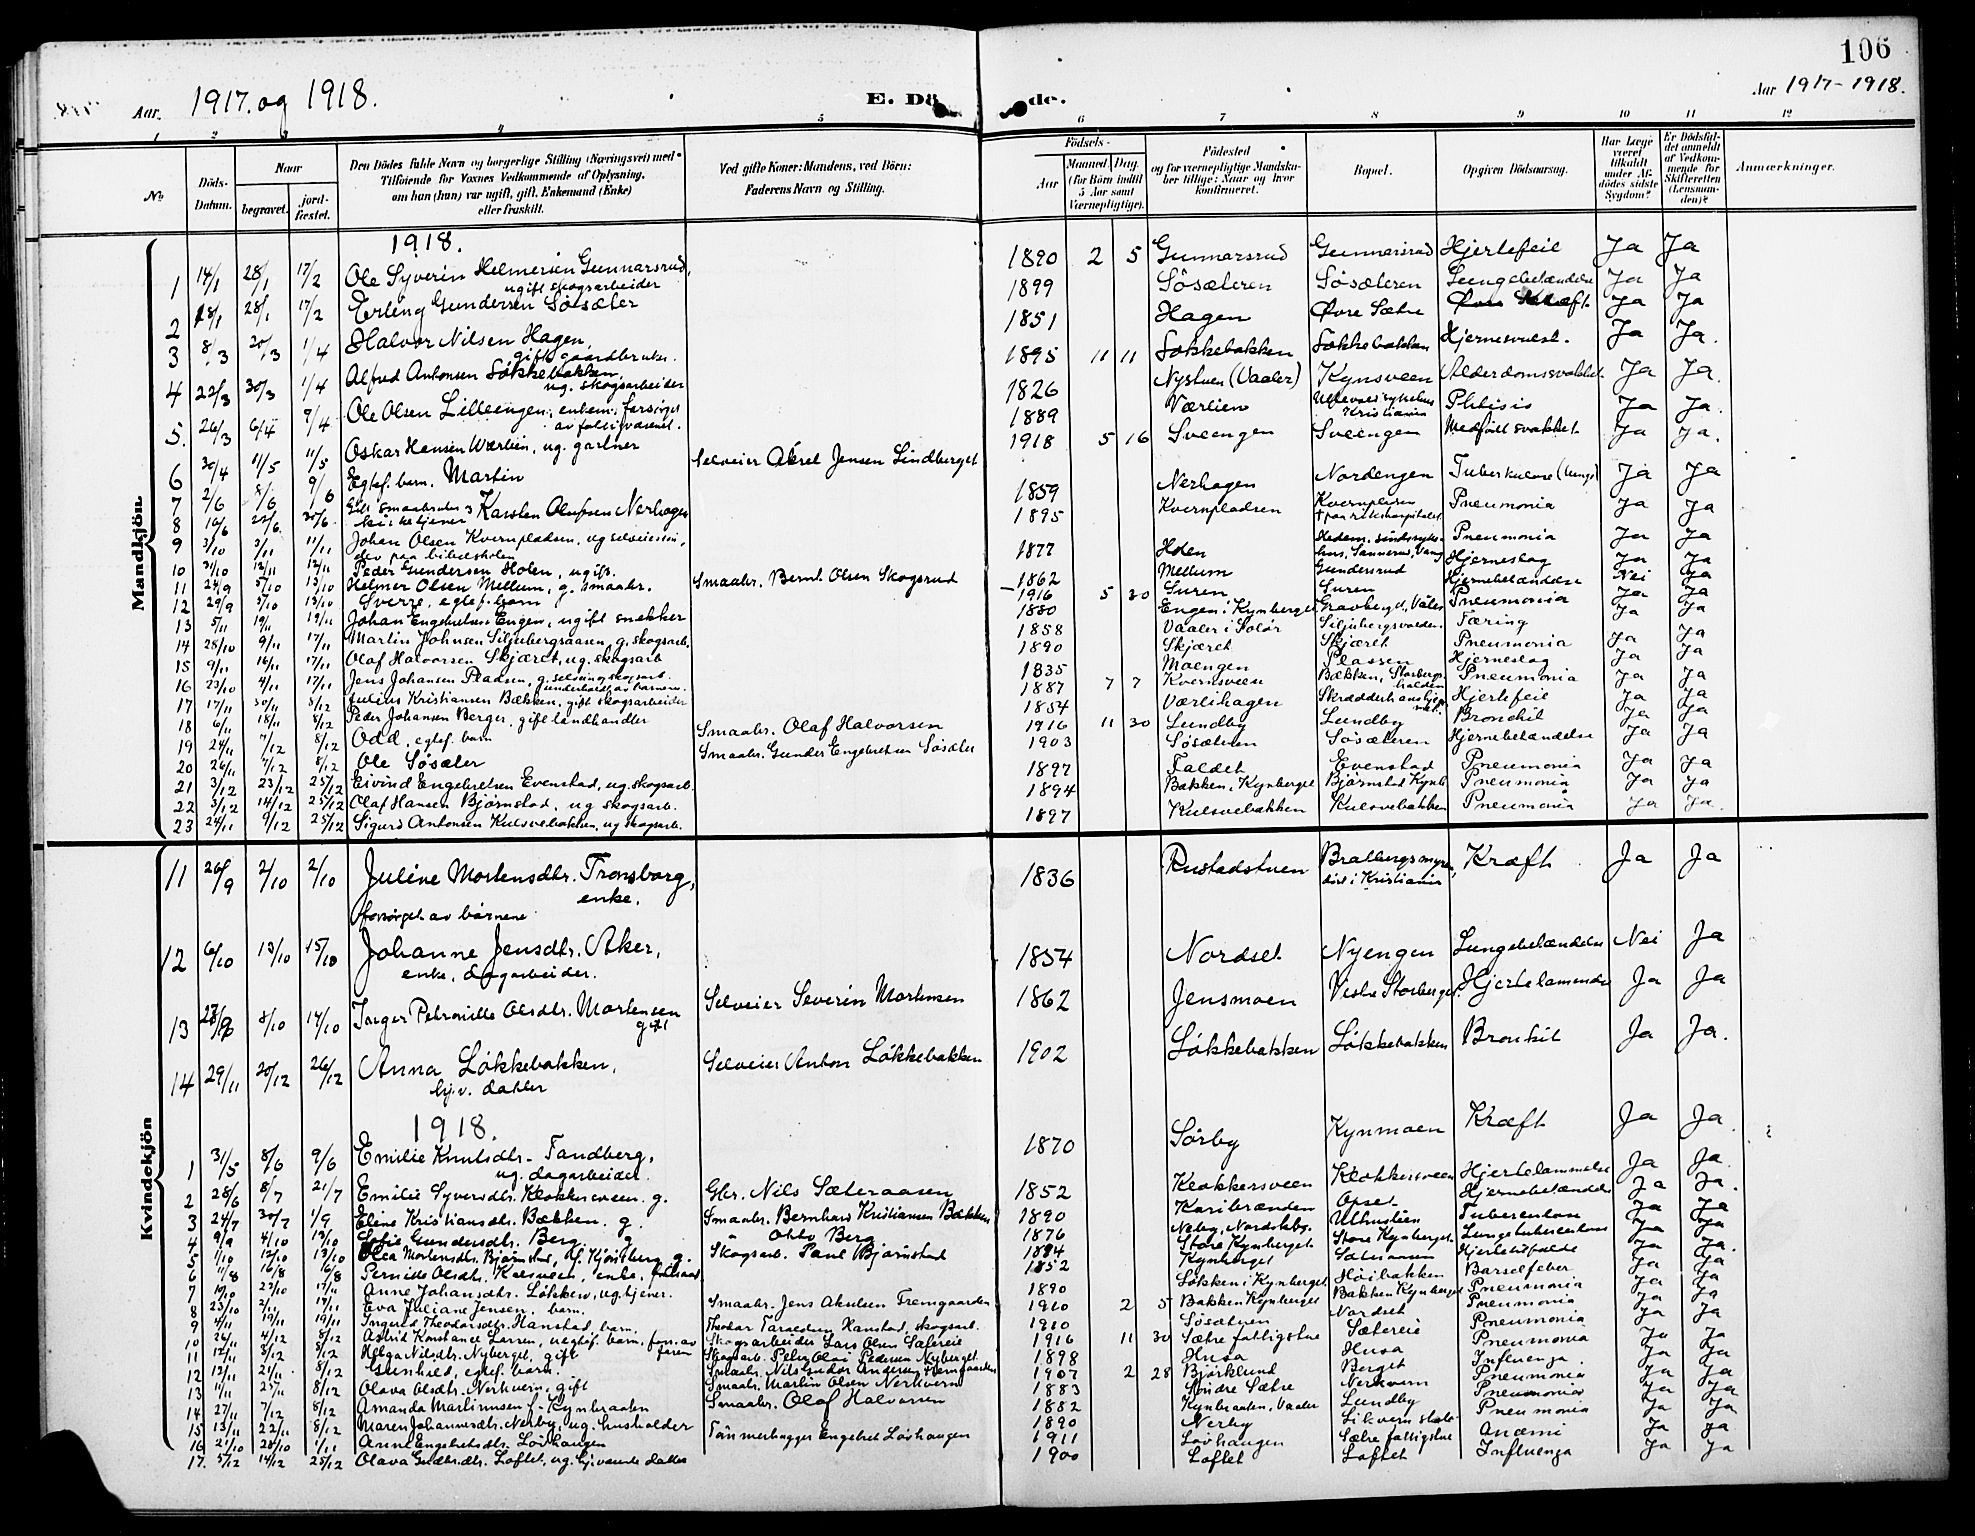 106
Aar. 1917. og 1918. E. Dö de. Aar 1917-1918.
1 2 3 4 5 6 7 8 9 10 11 12
No
Döds-Datum.
Naar begravet. jord-fæstet.
Den Dödes fulde Navn og borgerlige Stilling (Næringsvei) med Tilföiende for Voxnes Vedkommende af Oplysning, om han (hun) var ugift, gift, Enkemand (Enke) eller fraskilt.
Ved gifte Koner: Mandens, ved Börn: Faderens Navn og Stilling.
Födsels-
Aar Maaned. Dag. (for Börn indtil 5 Aar samt Værnepligtige).
Födested og for værnepligtige Mandskaber tillige: Naar og hvor konfirmeret.
Bopæl.
Opgiven Dödsaarsag.
Har Læge været tilkaldt under Afdödes sidste Sygdom?
Er Dödsfaldet anmeldt af Vedkommende for Skifteretten (Lensmanden)?
Anmærkninger.
Mandkjön
1918.
1 14/1 28/1 17/2 Ole Syverin Helmersen Gunnarsrud, ugift skogsarbeider 1890 2 5 Gunnarsrud Gunnarsrud Hjertefeil Ja Ja
2 18/1 28/1 17/2 Erling Gundersen Søsæter 1899 Søsæteren Søsæteren Lungebetændelse Ja Ja
3 8/3 20/3 1/4 Halvor Nilsen Hagen, gift gaardbruker. 1851 Hagen Øvre Sætre Kræft Ja Ja
4 22/3 30/3 1/4 Alfred Antonsen Løkkebakken, ug. skogsarbeider 1895 11 11 Løkkebakken Løkkebakken Hjernesvulst. Ja Ja.
5. 26/3 6/4 9/4 Ole Olsen Lilleengen, enkem, forsørget av fattigvæsenet. 1826 Nystuen (Vaaler) Kynsveen Alderdomssvakhet Ja Ja.
6 30/4 11/5 11/5 Oskar Hansen Wærlien, ug. gartner 1889 Værlien Ullevaal sykehus Kristiania Phtisis Ja Ja.
7 2/6 8/6 9/6 Egtef. barn. Martin Selveier Aksel Jensen Lindberget 1918 5 16 Sveengen Sveengen Medfødt svakhet Ja Ja.
8 16/6 22/6 30/6 Gift smaabruker & kirketjener Karsten Olufsen Nerhagen 1859 Nerhagen Nordengen Tuberkulose (lunge) Ja Ja
9 3/10 3/11 11/11 Johan Olsen Kvernpladsen, ug selveiersøn, elev paa bibelskolen 1895 Kvernpladsen Kvernpladsen † paa rikshospitalet Pneumonia Ja Ja
10 31/10 12/11 12/11 Peder Gundersen Holen, ugift. 1877 Holen Hedem. sindssykehus, Sannerud, Vang Pneumonia Ja Ja
11 24/9 5/10 13/10 Helmer Olsen Mellum, g. smaabr. 1862 Mellum Gundersrud Hjerneslag Ja Ja
12 29/9 5/10 13/10 Sverre, egtef. barn Smaabr. Bernt Olsen Skogsrud 1916 5 30 Furen Furen Hjernebetændelse Nei Ja
13 5/11 19/11 19/11 Johan Engebretsen Engen, ugift snekker 1880 Engen i Kynberget Gravberget, Våler Pneumonia Ja Ja
14 28/10 9/11 17/11 Martin Johnsen Siljubergsaasen, g. skogsarb. 1858 Vaaler i Solør Siljubergsvolden Tæring Ja Ja
15 9/11 16/11 17/11 Olaf Halvorsen Skjæret, ug. skogsarb 1890 Skjæret Skjæret Pneumonia Ja Ja
16 23/10 4/11 17/11 Jens Johansen Pladsen, g. underholdt av barnene. 1835 Moengen Plassen Hjerneslag Ja Ja
17 17/11 30/11 8/12 Julius Kristiansen Bækken, gift skogsarbeider 1887 7 7 Kvernsveen Bækken, Storbergshalden Pneumonia Ja Ja
18 6/11 18/11 8/12 Peder Johansen Berger, gift landhandler 1854 Værlihagen Hjertefeil Ja Ja
19 24/11 7/12 8/12 Odd, egtef. barn Smaabr. Olaf Halvorsen 1916 11 30 Lundby Lundby Bronkit Ja Ja
20 26/11 7/12 8/12 Ole Søsæter Smaabr. Gunder Engebretsen Søsæter 1903 Søsæteren Søsæteren Hjernebetændelse Ja Ja
21 3/12 23/12 25/12 Eivind Engebretsen Evenstad, ug. skogsarb 1897 Faldet Evenstad Pneumonia Ja Ja
22 3/12 14/12 25/12 Olaf Hansen Bjørnstad, ug skogsarb. 1894 Bakken, Kynberget Bjørnstad Kynb. Pneumonia Ja Ja
23 24/11 9/12 25/12 Sigurd Antonsen Kulsvebakken, ug skogsarb. 1897 Kulsvebakken Kulsvebakken Pneumonia Ja Ja.
Kvindekjön
11 26/9 2/10 2/10 Juline Mortensdtr. Tronsborg, enke. forsørget av børnene 1836 Rustadstuen Bratbergsmyren, død i Kristiania Kræft Ja Ja
12 6/10 13/10 15/10 Johanne Jensdtr. Aker, enke, dagarbeider. 1854 Nordset Nyengen Lungebetændelse Nei Ja
13 8/10 14/10 Inger Petronille Olsdtr. Mortensen gift Selveier Severin Mortensen 1862 Jensmoen Vestre Storberget. Hjertelammelse Ja Ja
14 29/11 20/12 26/12 Anna Løkkebakken, hj.v. datter Selveier Anton Løkkebakken 1902 Løkkebakken Løkkebakken Bronkit Ja Ja.
1918.
1 31/5 8/6 9/6 Emilie Knutsdtr. Tandberg, ug. dagarbeider. 1870 Sørby Kynmoen Kræft Ja Ja.
2 28/6 8/7 21/7 Emilie Syversdtr. Klokkersveen. g. Gbr. Nils Sæteraasen 1852 Klokkersveen Klokkersveen Hjertelammelse Ja Ja.
3 24/7 30/7 1/9 Eline Kristiansdtr. Bækken. g. Smaabr. Bernhard Kristiansen Bækken 1890 Karibrænden Opset Hjernebetændelse Ja Ja.
4 9/9 4/10 13/10 Sofie Gundersdtr. Berg. g Otto Berg 1876 Neby, Nordskbg. Ulhustien Tuberculose Ja Ja
5 1/10 12/10 13/10 Olea Mortensdtr. Bjørnstad, g. Skogsarb. Paul Bjørnstad 1884 Store Kynberget Store Kynberget Lungetuberculose Ja Ja
6 11/8 16/8 16/8 Pernille Olsdtr. enke, 1852 Kynberget Sæteraasen Hjertetilfælde Ja Ja.
7 10/10 22/10 17/11 Anne Johansdtr. Løkken, ug. tjener. 1890 Løkken i Kynberget Høibakken Barselfeber Ja Ja
8 23/10 2/11 17/11 Eva Juliane Jensen, barn. Smaabr. Jens Akselsen Fremgaarden 1910 2 5 Bakken Kynberget Bakken Kynberget Pneumonia Ja Ja
9 4/11 19/11 19/11 Ingrid Theodorsdtr. Hanstad, barn. Theodor Taraldsen Hanstad, skogsarb. 1910 Søsætren Nordset Pneumonia Ja Ja
10 26/11 4/12 8/12 Astrid Konstance Larsen, uegtef. barn, fors. av faren Skogsarbeider Lars Olsen Sætereie 1916 11 30 Sætre fattigstue Sætereie Pneumonia Ja Ja
11 12/11 8/12 8/12 Helga Nilsdtr. Nyberget, gift Skogsarb. Peder Olai Pedersen Nyberget 1898 Husa Husa Pneumonia Ja Ja
12 12/11 21/11 8/12 Gunhild, egtef. barn. Smaabr. Nils Andor Andersen 1907 2 28 Bjørklund Berget Influenza Ja Ja
13 11/11 25/11 8/12 Olava Olsdtr. Nerkvern, gift Smaabr. Martin Olsen Nerkvern 1883 Søndre Sætre Nerkvern Pneumonia Ja Ja
14 27/11 7/12 8/12 Amanda Martinusen f. Kynbraaten Smaabr. Olaf Halvorsen 1882 Kynbraaten, Vaaler Lundby Pneumonia Ja Ja
15 13/11 22/11 8/12 Maren Johannesdtr. Nerby, ug. husholder 1890 Nerby Pneumonia Ja Ja
16 21/10 28/10 1/11 Anne Engebretsdtr. Løvhaugen Tømmerhugger Engebret Løvhaugen 1911 Løvhaugen Sætre fattigstue Anæmi Ja Ja
17. 5/12 14/12 25/12 Olava Gudbrdtr. Loftet, ug. hj.værende datter 1900 Loftet Loftet Influenza Ja Ja